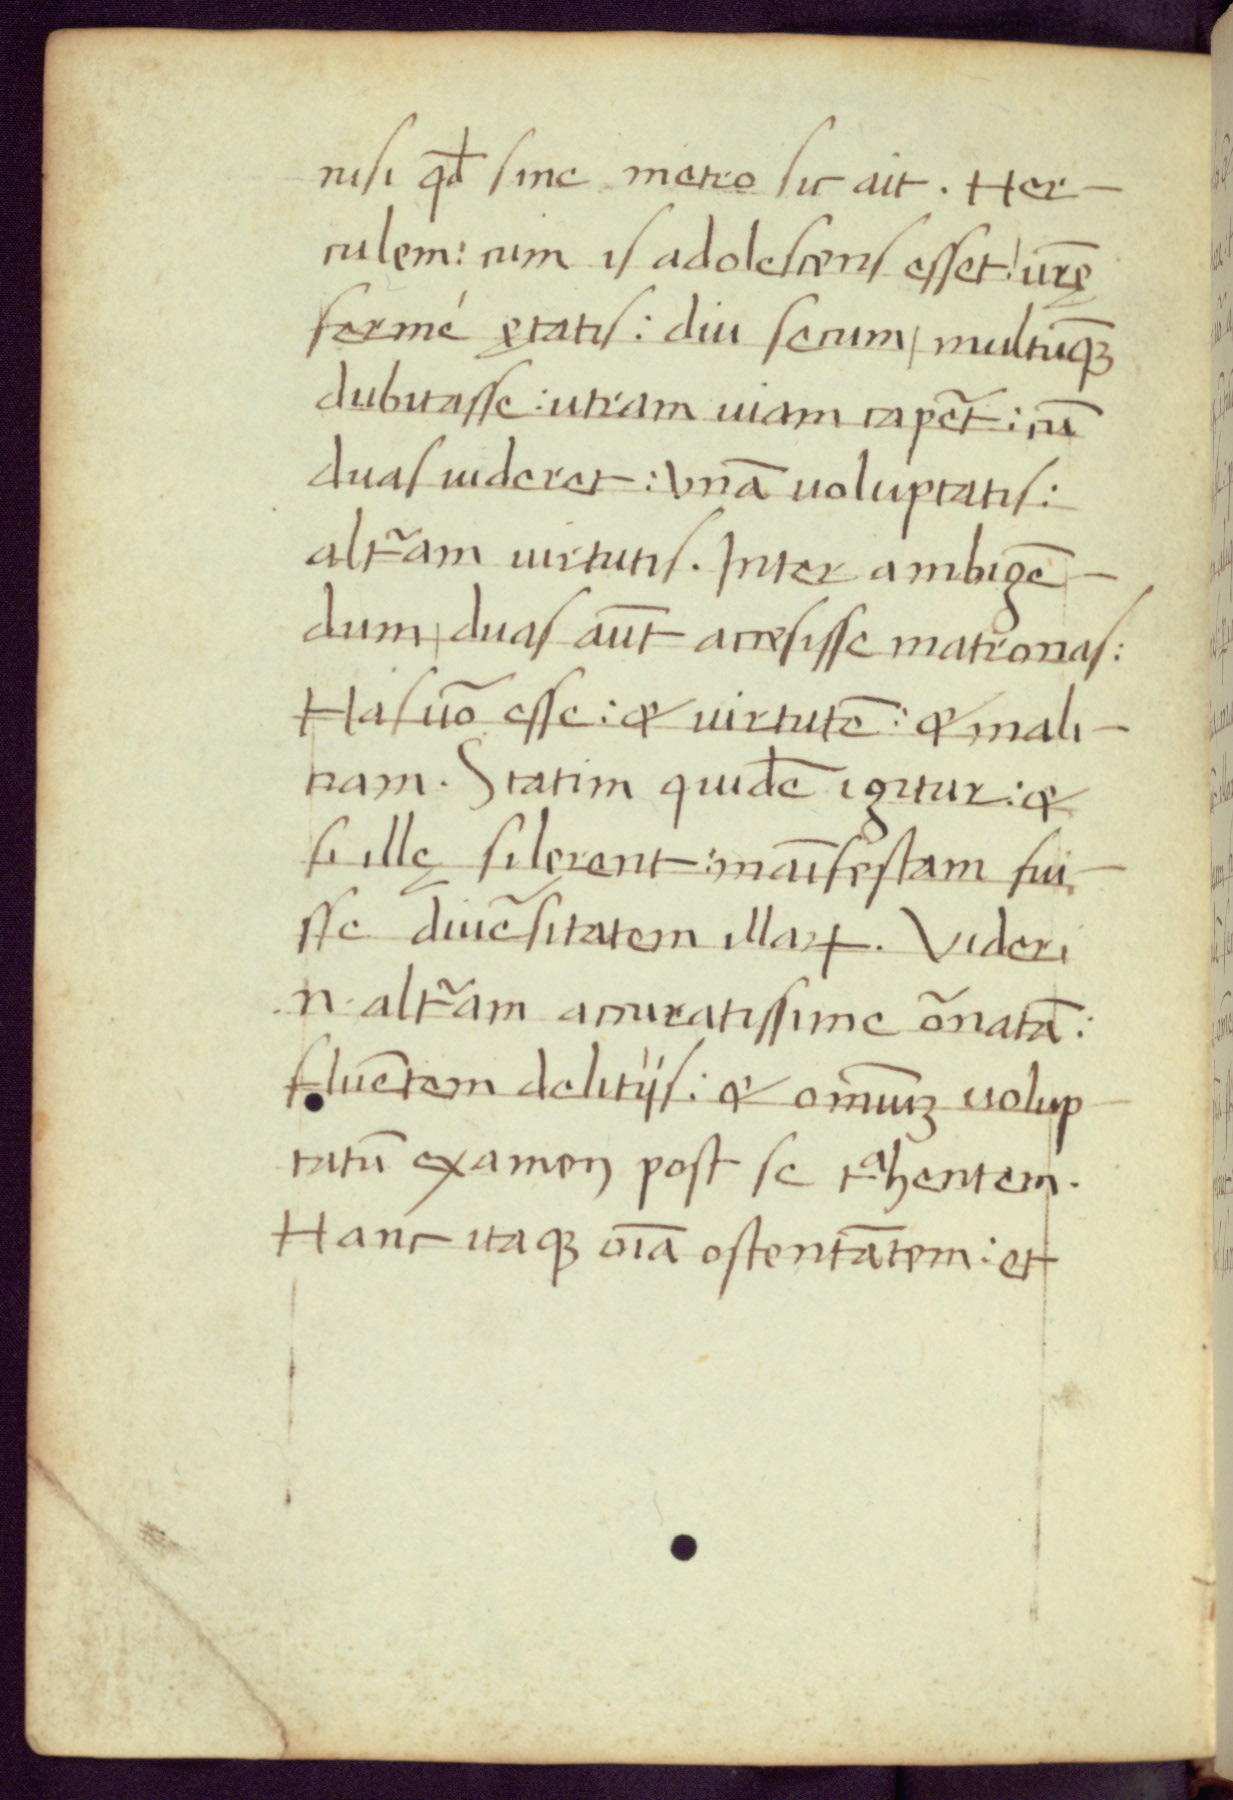 nisi qđ sine metro sic ait. Her-
culem: cum is adolescens esset: ur̄ę
fermé ętatis: diu secum, multūqꝫ
dubitasse: utram uiam cap̃et: cū
duas uideret: Vnā uoluptatis:
alt̃am uirtutis. Inter ambigē-
dum, duas aūt accesisse matronas:
Has uō esse: & uirtutē: & mali-
tiam. Statim quidē igitur: &
si illę silerent: māifestam fui-
sse diuẽsitatem illaꝝ. Videri
n. alt̃am accuratissime õnatā:
fluētem delitijs: & omīuꝫ uolup-
tatū examen post se tᵃhentem.
Hanc itaqꝫ oīa ostentātem: et